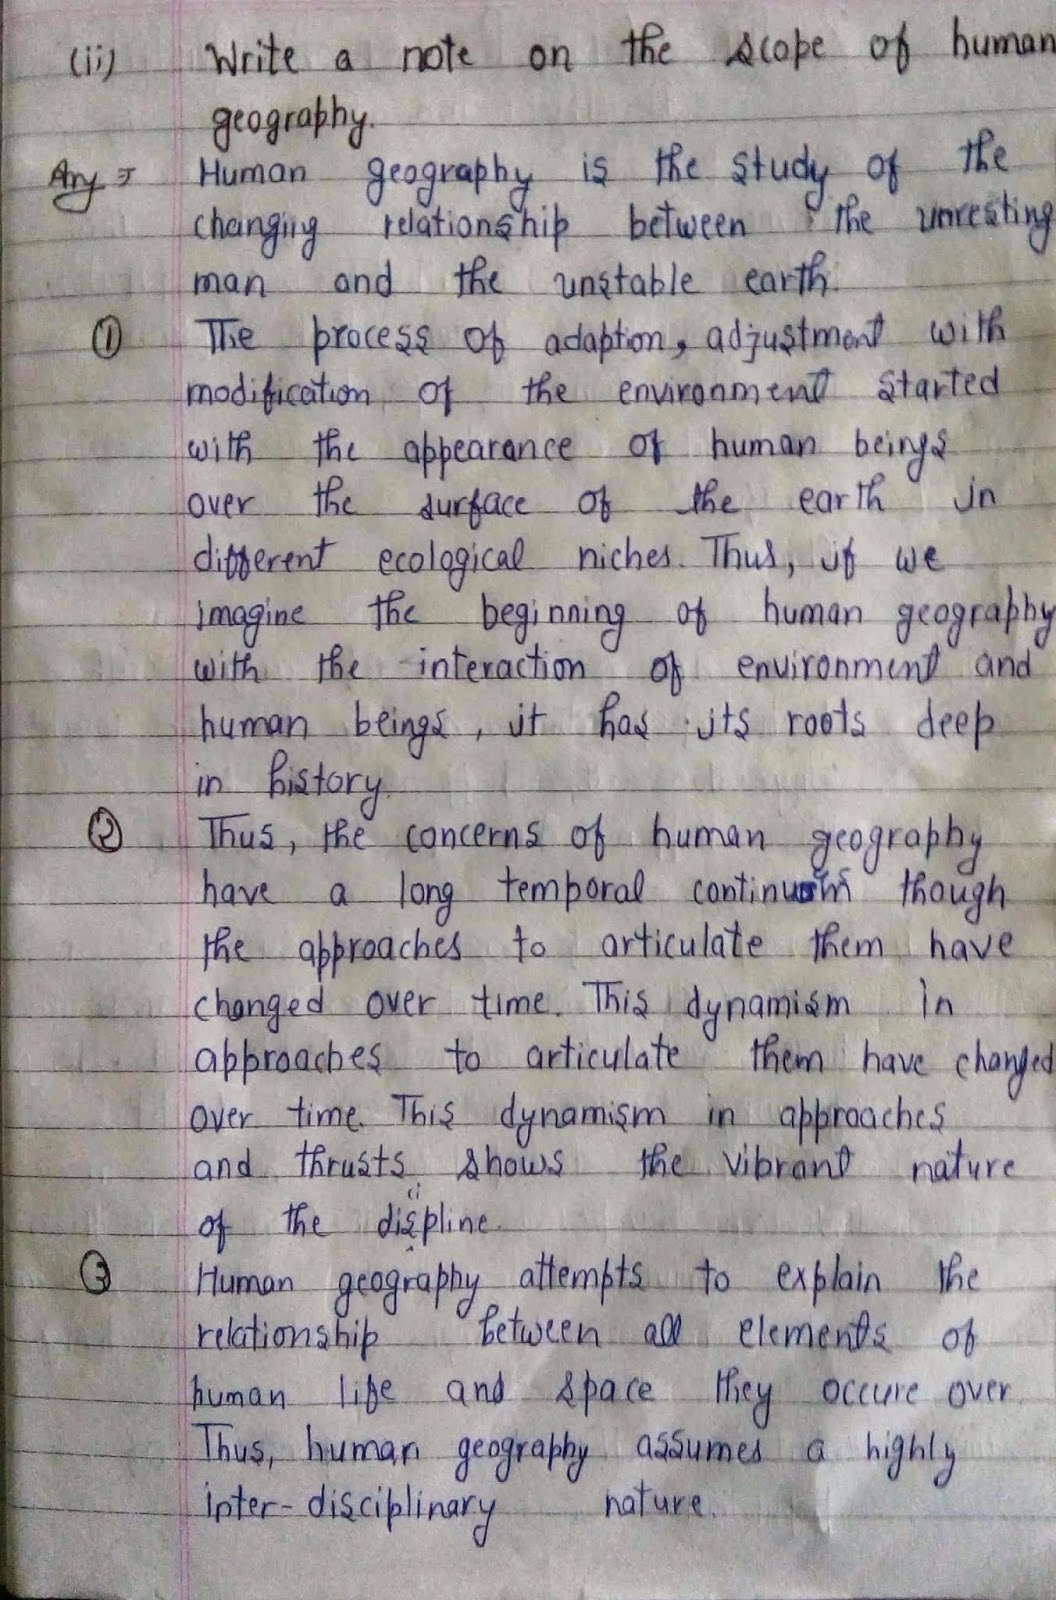 (ii) Write a note on the scope of human
geography.
Ans Human geography is the study of the
changing relationship between the unresting
man and the unstable earth.
① The process of adaption, adjustment with
modification of the environment started
with the appearance of human beings
over the surface of the earth in
different ecological niches. Thus, if we
imagine the beginning of human geography
with the interaction of environment and
human beings, it has its roots deep
in history.
② Thus, the concerns of human geography
have a long temporal continuum though
the approaches to articulate them have
changed over time. This dynamism in
approaches to articulate them have changed
over time. This dynamism in approaches
and thrusts shows the vibrant nature
of the disciipline.
③ Human geography attempts to explain the
relationship between all elements of
human life and space they occure over.
Thus, human geography assumes a highly
inter-disciplinary nature.